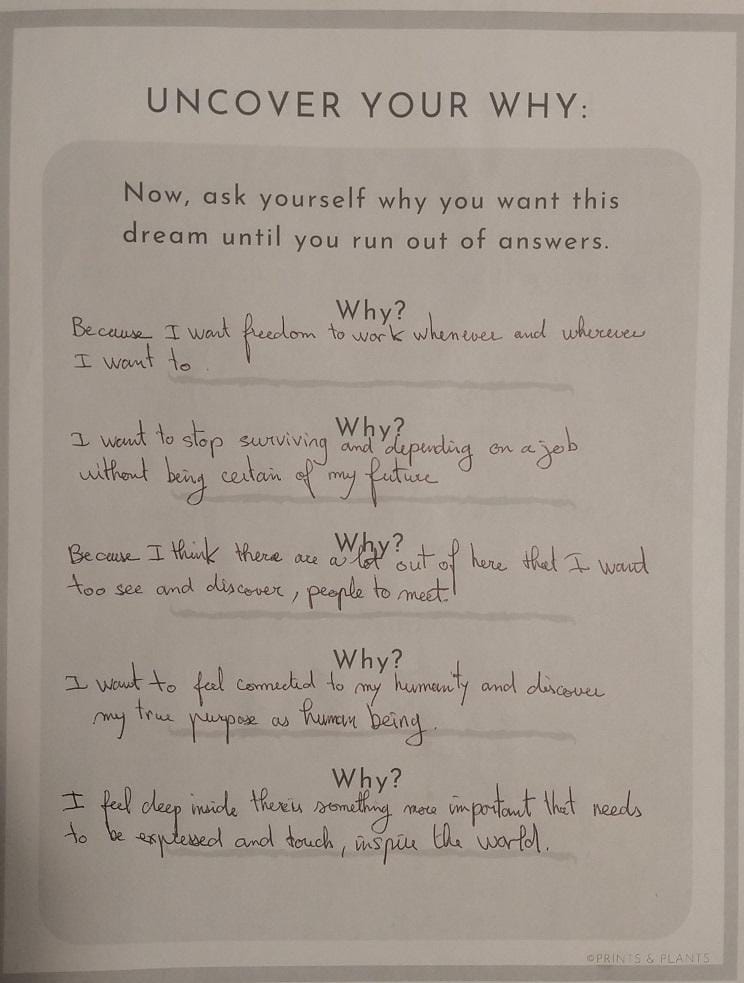 UNCOVER YOUR WHY:
Now, ask yourself why you want this
dream until you run out of answers.
Why?
Because I want freedom to work whenever and wherever
I want to.
Why?
I want to stop surviving and depending on a job
without being certain of my future
Why?
Because I think there are a lot out of here that I want
too see and discover, people to meet!
Why?
I want to feel connected to my humanity and discover
my true purpose as human being.
Why?
I feel deep inside there is something more important that needs
to be expressed and touch, inspire the world.
©PRINTS & PLANTS